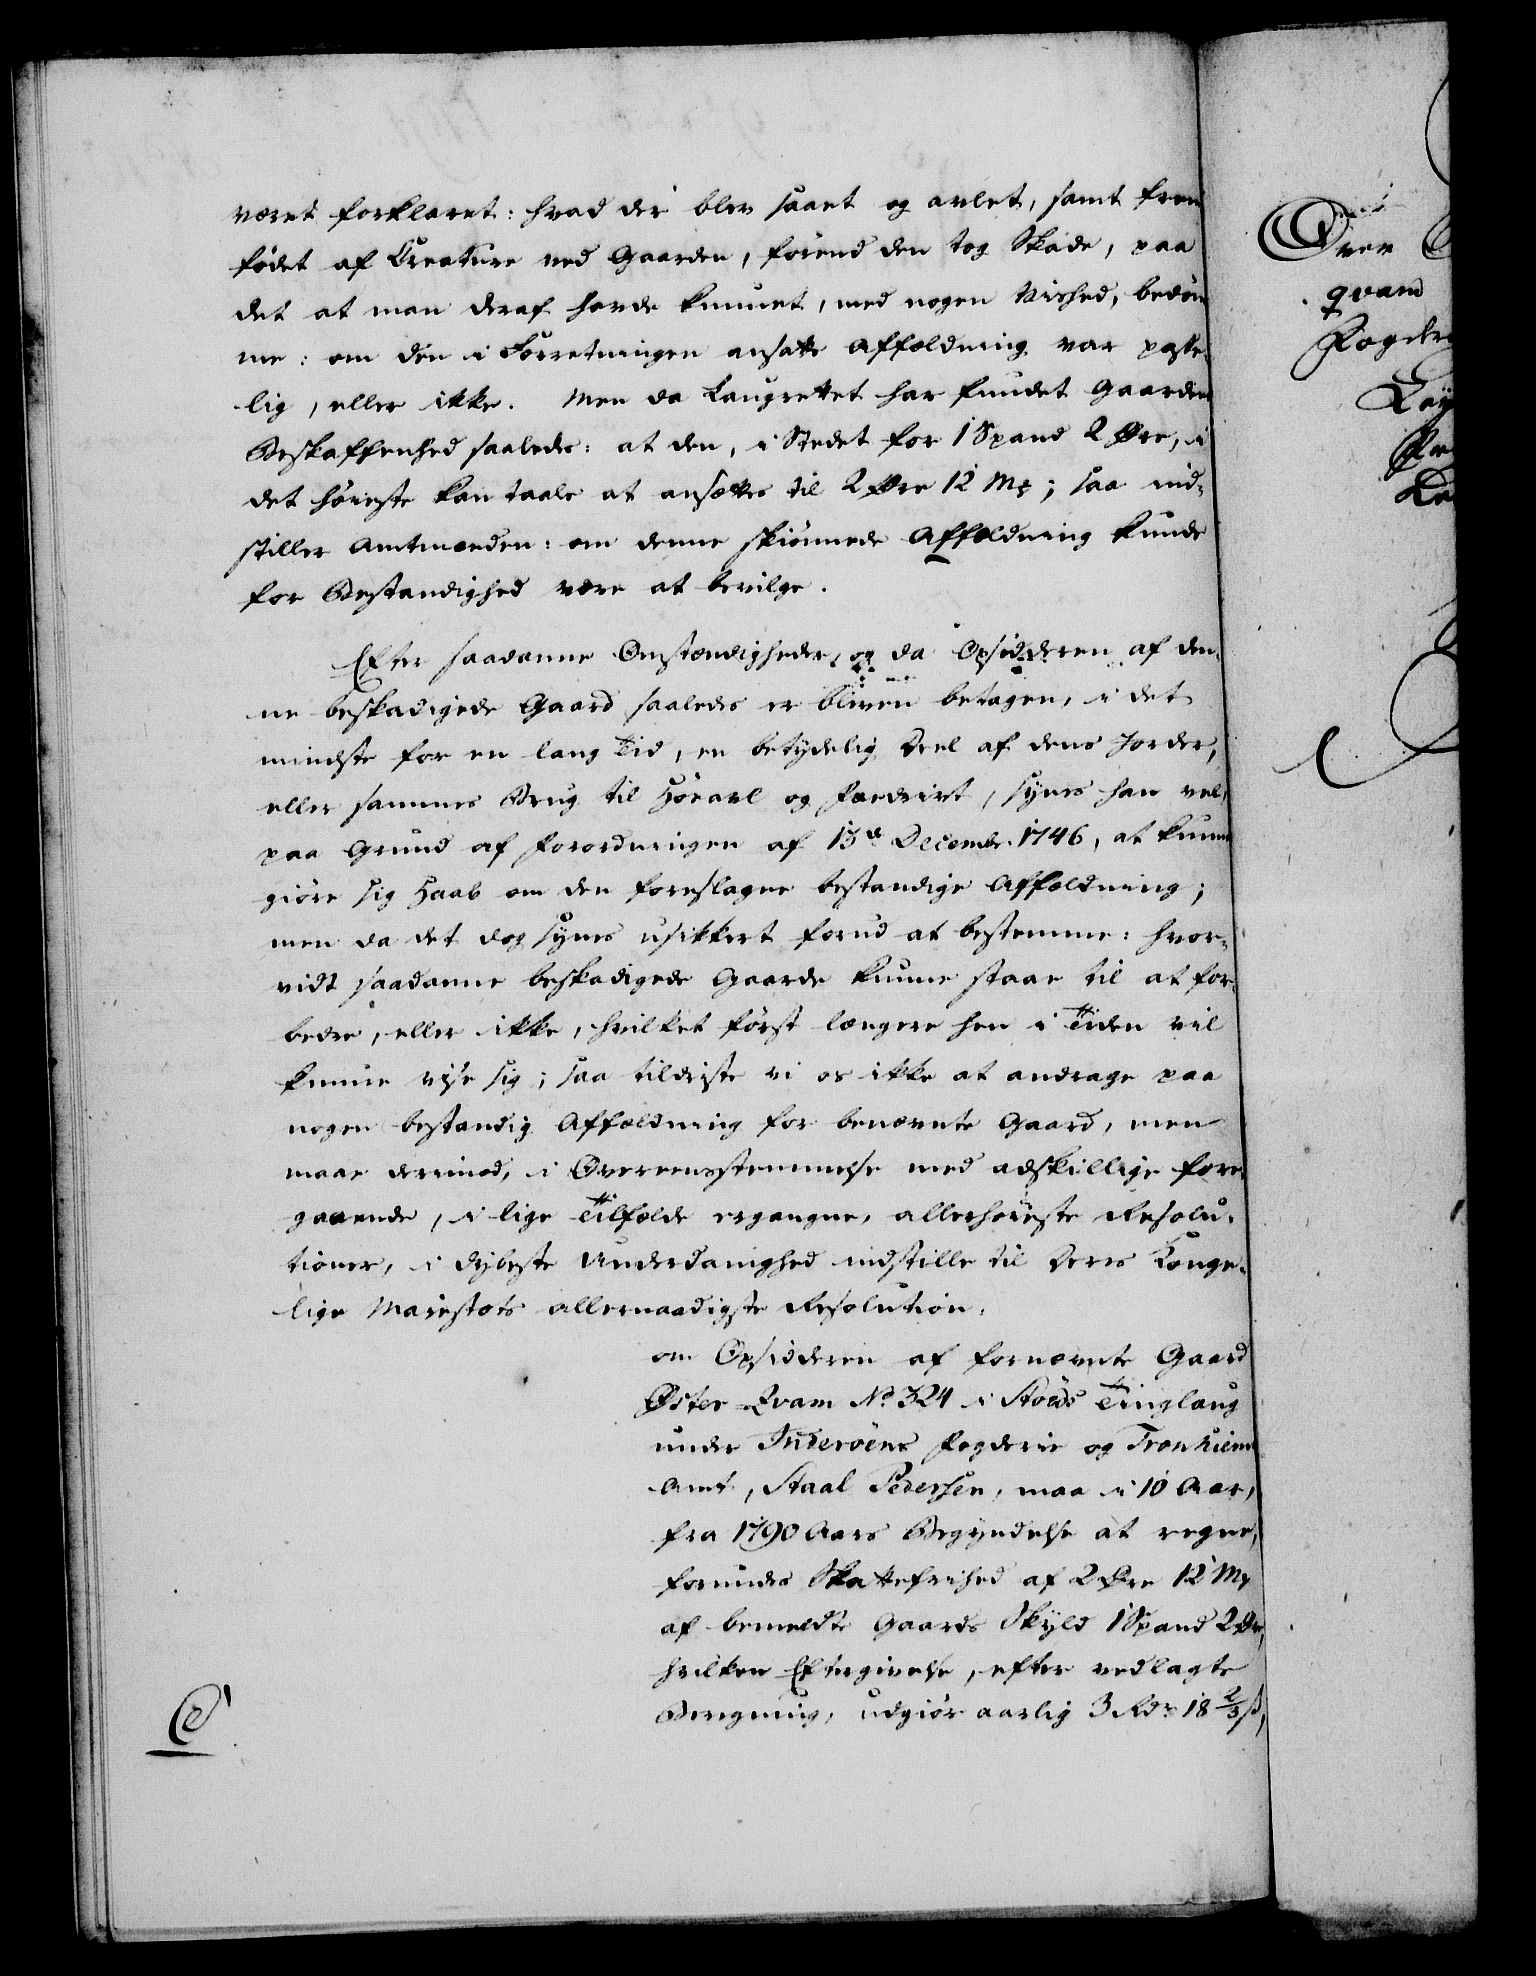 været forklaret: hvad der blev saaet og avlet, samt frem
födet af Creature ved Gaarden, förend den tog Skade, paa
det at man deraf havde kunnet, med nogen Vished, bedöm
me: om den i Forretningen ansatte Affældning var passe-
lig, eller ikke. Men da Laugrettet har fundet Gaardens
Beskaffenhed saaledes: at den, i Stedet for 1 Spand 2 Øre, i
det höieste kan taale at ansættes til 2 Øre 12 Mk; saa ind-
stiller Amtmanden: om denne skiönnede Affældning kunde
for Bestandighed være at bevilge.
Efter saadanne Omstændigheder, og da Opsidderen af den-
ne beskadigede Gaard saaledes er bleven betagen, i det
mindste for en lang Tid, en betydelig Deel af dens Jorder,
eller sammes Brug til Höeavl og Fædrivt, synes han vel,
paa Grund af Forordningen af 13de Decembr. 1746, at kunne
giöre sig Haab om den foreslagne bestandige Affældning;
men da det dog synes usikkert forud at bestemme: hvor-
vidt saadanne beskadigede Gaarde kunne staae til at for-
bedre, eller ikke, hvilket först længere hen i Tiden vil
kunne vise sig; saa tildriste vi os ikke at andrage paa
nogen bestandig Affældning for benævnte Gaard, men
maae derimod, i Overeensstemmelse med adskillige fore
gaaende, i lige Tilfælde ergangne, allerhöieste Resolu-
tioner, i dybeste Underdanighed indstille til Deres Konge-
lige Majestæts allernaadigste Resolution:
om Opsidderen af fornævnte Gaard
Øster Qvam No 324 i Stöeds Tinglaug
under Inderöens Fogderie og Tronhiems
Amt, Staal Pedersen, maa i 10 Aar,
fra 1790 Aars Begyndelse at regne,
forundes Skattefrihed af 2 Øre 12 Mk
af bemeldte Gaards Skyld 1 Spand 2 Øre,
hvilken Eftergivelse, efter vedlagte
Beregning, udgiör aarlig 3 Rdr 18 2/3 ß,
qvam